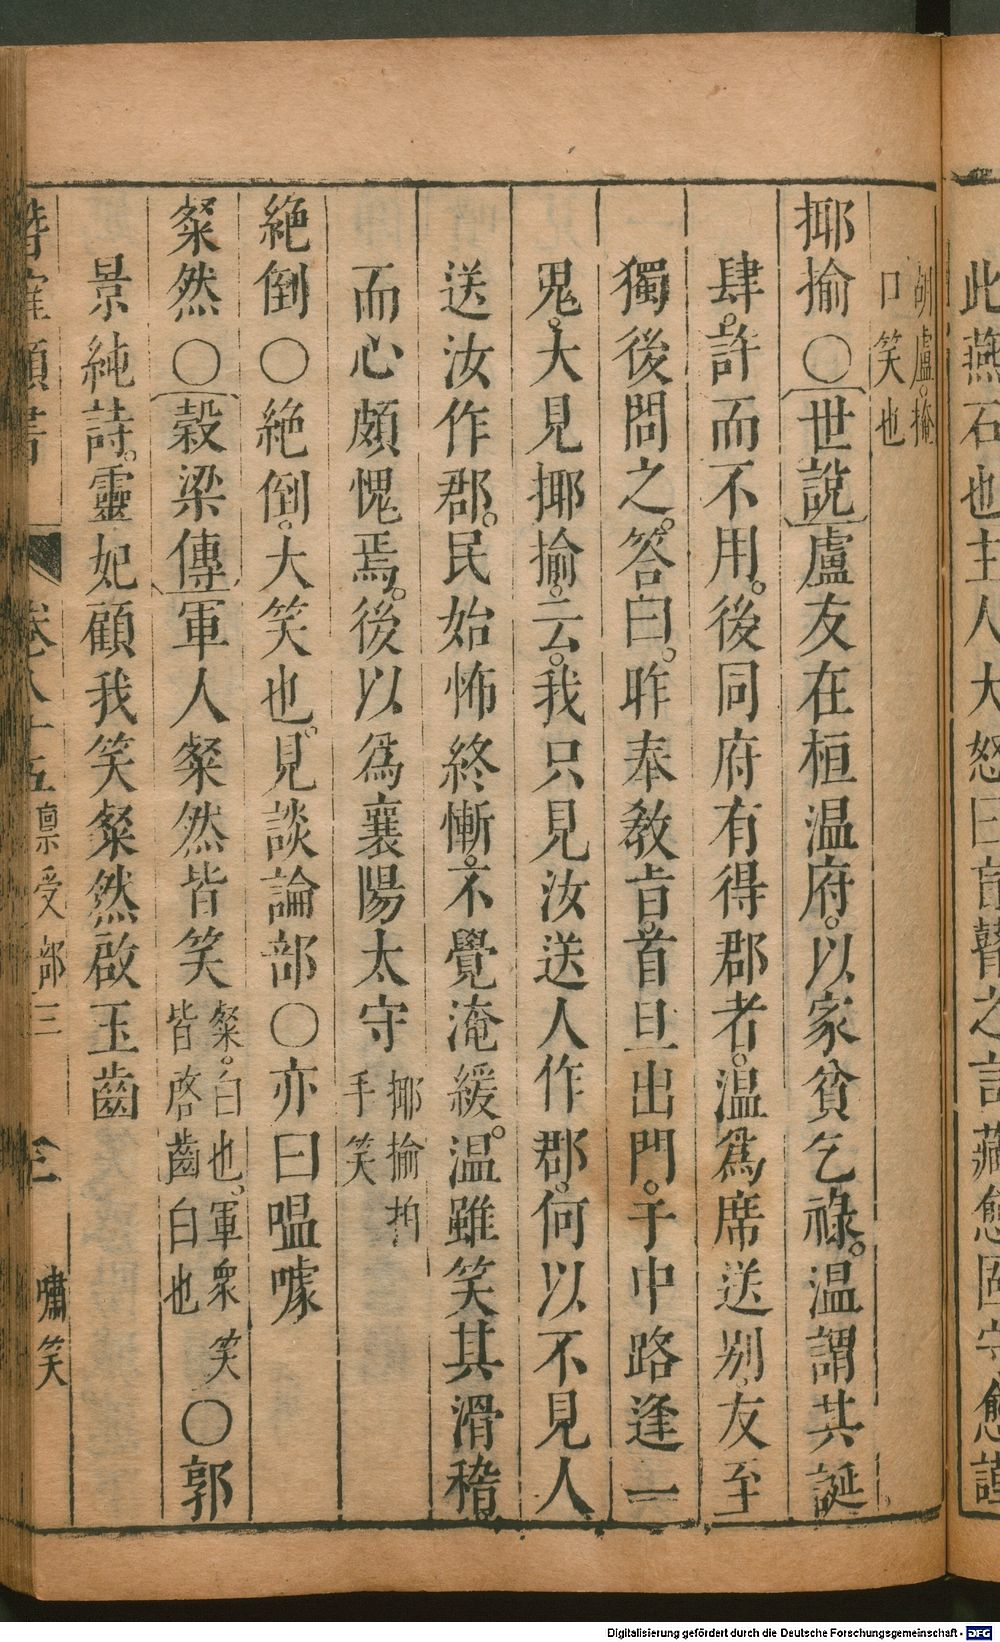 此燕石也主人大怒曰盲瞽之言藏愈固守愈謹
胡盧。掩
口笑也
揶揄〇世說盧友在桓温府。以家貧乞祿。温謂其誕
肆。許而不用。後同府有得郡者。温爲席送别。友至
獨後問之。答曰。昨奉教旨。首旦出門。于中路逢一
鬼。大見揶揄。云。我只見汝送人作郡。何以不見人
送汝作郡。民始怖終慚。不覺淹緩。温雖笑其滑稽
而心頗愧焉。後以爲襄陽太守揶揄拍
手笑
絶倒〇絶倒。大笑也。見談論部〇亦曰嗢噱
粲然〇穀梁傳軍人粲然皆笑粲。白也。軍衆笑
皆啓齒白也〇郭
景純詩。靈妃顧我笑粲然啟玉齒
潛確類書 卷八十五 禀受部三 三 嘯笑
Digitalisierung gefördert durch die Deutsche Forschungsgemeinschaft - DFG